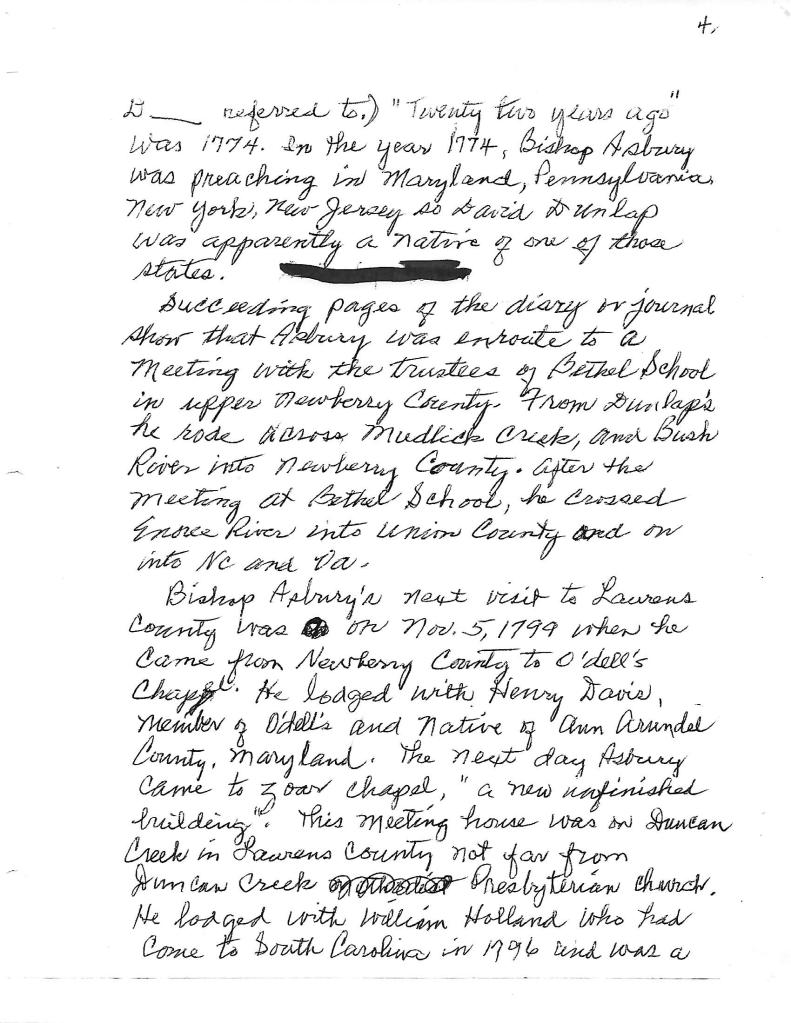 4.
D___ referred to.) "Twenty two years ago"
was 1774. In the year 1774, Bishop Asbury
was preaching in Maryland, Pennsylvania,
New York, New Jersey so David Dunlap
was apparently a native of one of those
states.
Succeeding pages of the diary or journal
show that Asbury was enroute to a
meeting with the trustees of Bethel School
in upper Newberry County. From Dunlap's
he rode across Mudlick Creek, and Bush
River into Newberry County. After the
meeting at Bethel School, he crossed
Enoree River into Union County and on
into NC and Va.
Bishop Asbury's next visit to Laurens
County was on Nov. 5, 1799 when he
came from Newberry County to O'dell's
Chapel. He lodged with Henry Davis,
member of Odell's and native of Ann Arundel
County, Maryland. The next day Asbury
came to Zoar Chapel, "a new unfinished
building". This meeting house was on Duncan
Creek in Laurens County not far from
Duncan Creek Presbyterian church.
He lodged with William Holland who had
come to South Carolina in 1796 and was a